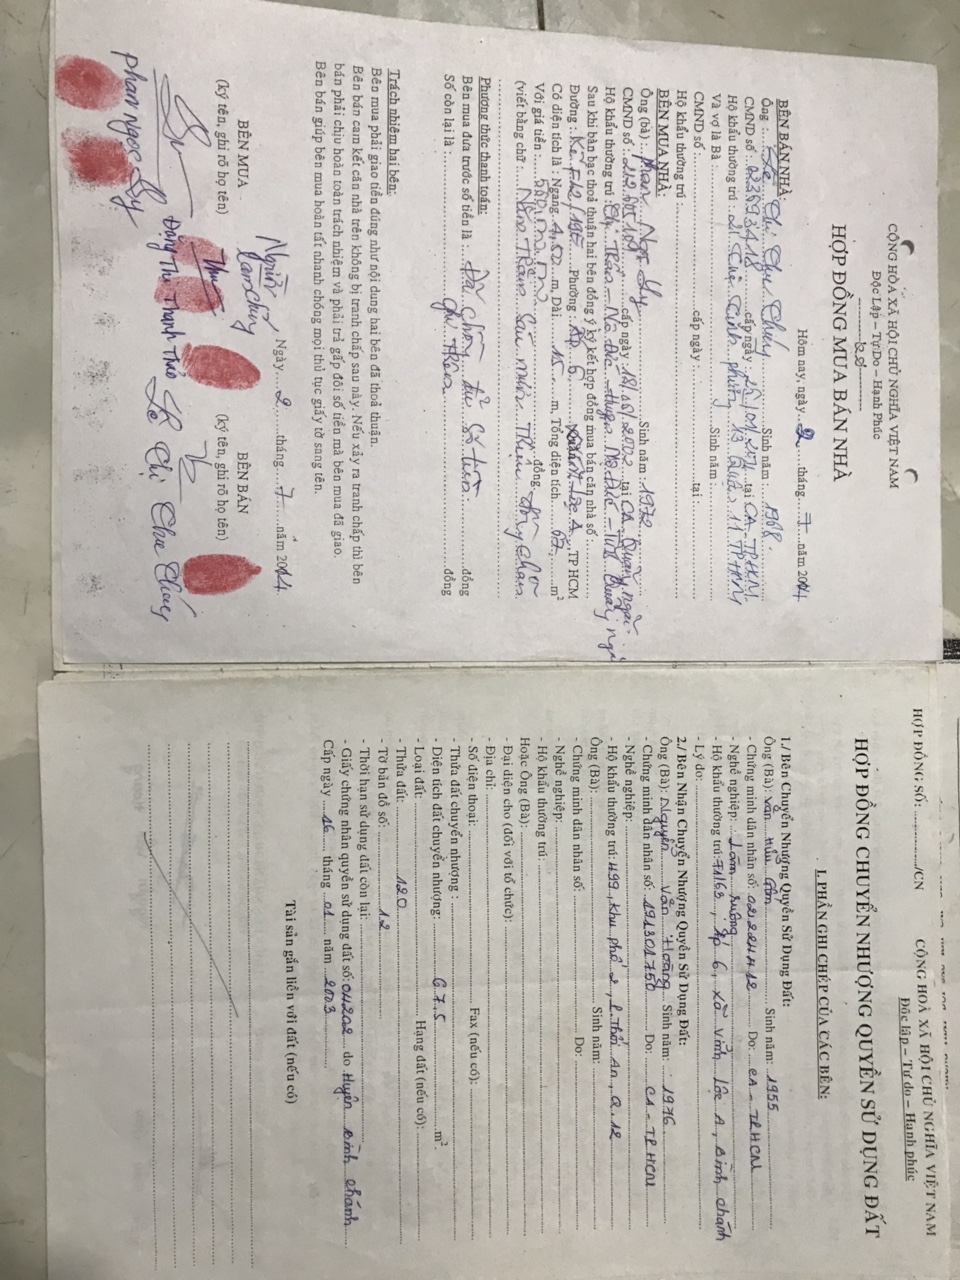 CỘNG HÒA XÃ HỘI CHỦ NGHĨA VIỆT NAM
Độc Lập – Tự Do – Hạnh Phúc
HỢP ĐỒNG MUA BÁN NHÀ
Hôm nay, ngày...2....tháng...7....năm 2014
BÊN BÁN NHÀ:
Ông :...Lê Chị Chu Chúng.......Sinh năm :...1968.
CMND số :.........cấp ngày :.........tại CA. TPHCM
Hộ khẩu thường trú :...........phường 13 Quận 11 TPHCM
Và vợ là Bà :..............Sinh năm :..........
CMND số :..............cấp ngày :..............tại :..........
Hộ khẩu thường trú :..............
BÊN MUA NHÀ:
Ông (bà) :..Phan Ngọc Sy............Sinh năm :..1972
CMND số :..........cấp ngày :.18/06/2002..tại CA. Quảng ngãi.
Hộ khẩu thường trú :.......... Mộ Đức - Tỉnh Quảng ngãi
Sau khi bàn bạc thoả thuận hai bên đồng ý ký kết hợp đồng mua bán căn nhà số ............
Đường :..............Phường :..Ấp 6........Vĩnh Lộc A., TP HCM
Có diện tích là : Ngang..4,00...m, Dài.....15....m, Tổng diện tích.......m²
Với giá tiền :..............đồng.
(viết bằng chữ :...Năm Trăm Sáu mươi Triệu đồng chẵn
Phương thức thanh toán:
Bên mua đưa trước số tiền là :..Đã chồng đủ số tiền............đồng
Số còn lại là :..............đồng
Trách nhiệm hai bên:
Bên mua phải giao tiền đúng như nội dung hai bên đã thoả thuận.
Bên bán cam kết căn nhà trên không bị tranh chấp sau này. Nếu xảy ra tranh chấp thì bên
bán phải chịu hoàn toàn trách nhiệm và phải trả gấp đôi số tiền mà bên mua đã giao.
Bên bán giúp bên mua hoàn tất nhanh chóng mọi thủ tục giấy tờ sang tên.
Ngày....2.....tháng...7.....năm 2014
BÊN MUA
(ký tên, ghi rõ họ tên)
Người
làm chứng
BÊN BÁN
(ký tên, ghi rõ họ tên)
Phan Ngọc Sy
Đặng Thị Thanh Thảo
Lê Chị Chu Chúng
HỢP ĐỒNG SỐ: ............../CN
CỘNG HOÀ XÃ HỘI CHỦ NGHĨA VIỆT NAM
Độc lập – Tự do – Hạnh phúc
HỢP ĐỒNG CHUYỂN NHƯỢNG QUYỀN SỬ DỤNG ĐẤT
I. PHẦN GHI CHÉP CỦA CÁC BÊN:
1./ Bên Chuyển Nhượng Quyền Sử Dụng Đất:
Ông (Bà): Văn Hữu .............. Sinh năm: .1955..........
- Chứng minh dân nhân số: 022244412...... Do: CA - TPHCM
- Nghề nghiệp: ..Làm ruộng
- Hộ khẩu thường trú: F1/63, Ấp 6, xã Vĩnh Lộc A, Bình Chánh
- Lý do: ..............
2./ Bên Nhận Chuyển Nhượng Quyền Sử Dụng Đất:
Ông (Bà): Nguyễn Văn Hoàng... Sinh năm: ..1976......
- Chứng minh dân nhân số: 191301750....... Do: ... CA - TPHCM
- Nghề nghiệp: ..............
- Hộ khẩu thường trú: 499, Khu phố 2, P. Thới An, Q.12
Ông (Bà): .............. Sinh năm: ..............
- Chứng minh dân nhân số: .............. Do: ..............
- Nghề nghiệp: ..............
- Hộ khẩu thường trú: ..............
Hoặc Ông (Bà): ..............
- Đại diện cho (đối với tổ chức): ..............
- Địa chỉ: ..............
- Số điện thoại: .............. Fax (nếu có): ..............
- Thửa đất chuyển nhượng : ..............
- Diện tích đất chuyển nhượng: ........67.5..............m².
- Loại đất: .............. Hạng đất (nếu có): ..............
- Thửa đất: .......120..............
- Tờ bản đồ số: .........12..............
- Thời hạn sử dụng đất còn lại: ..............
- Giấy chứng nhân quyền sử dụng đất số: 04202.... do Huyện Bình Chánh
Cấp ngày ..16.... tháng ..01.... năm ..2003..........
Tài sản gắn liền với đất (nếu có)